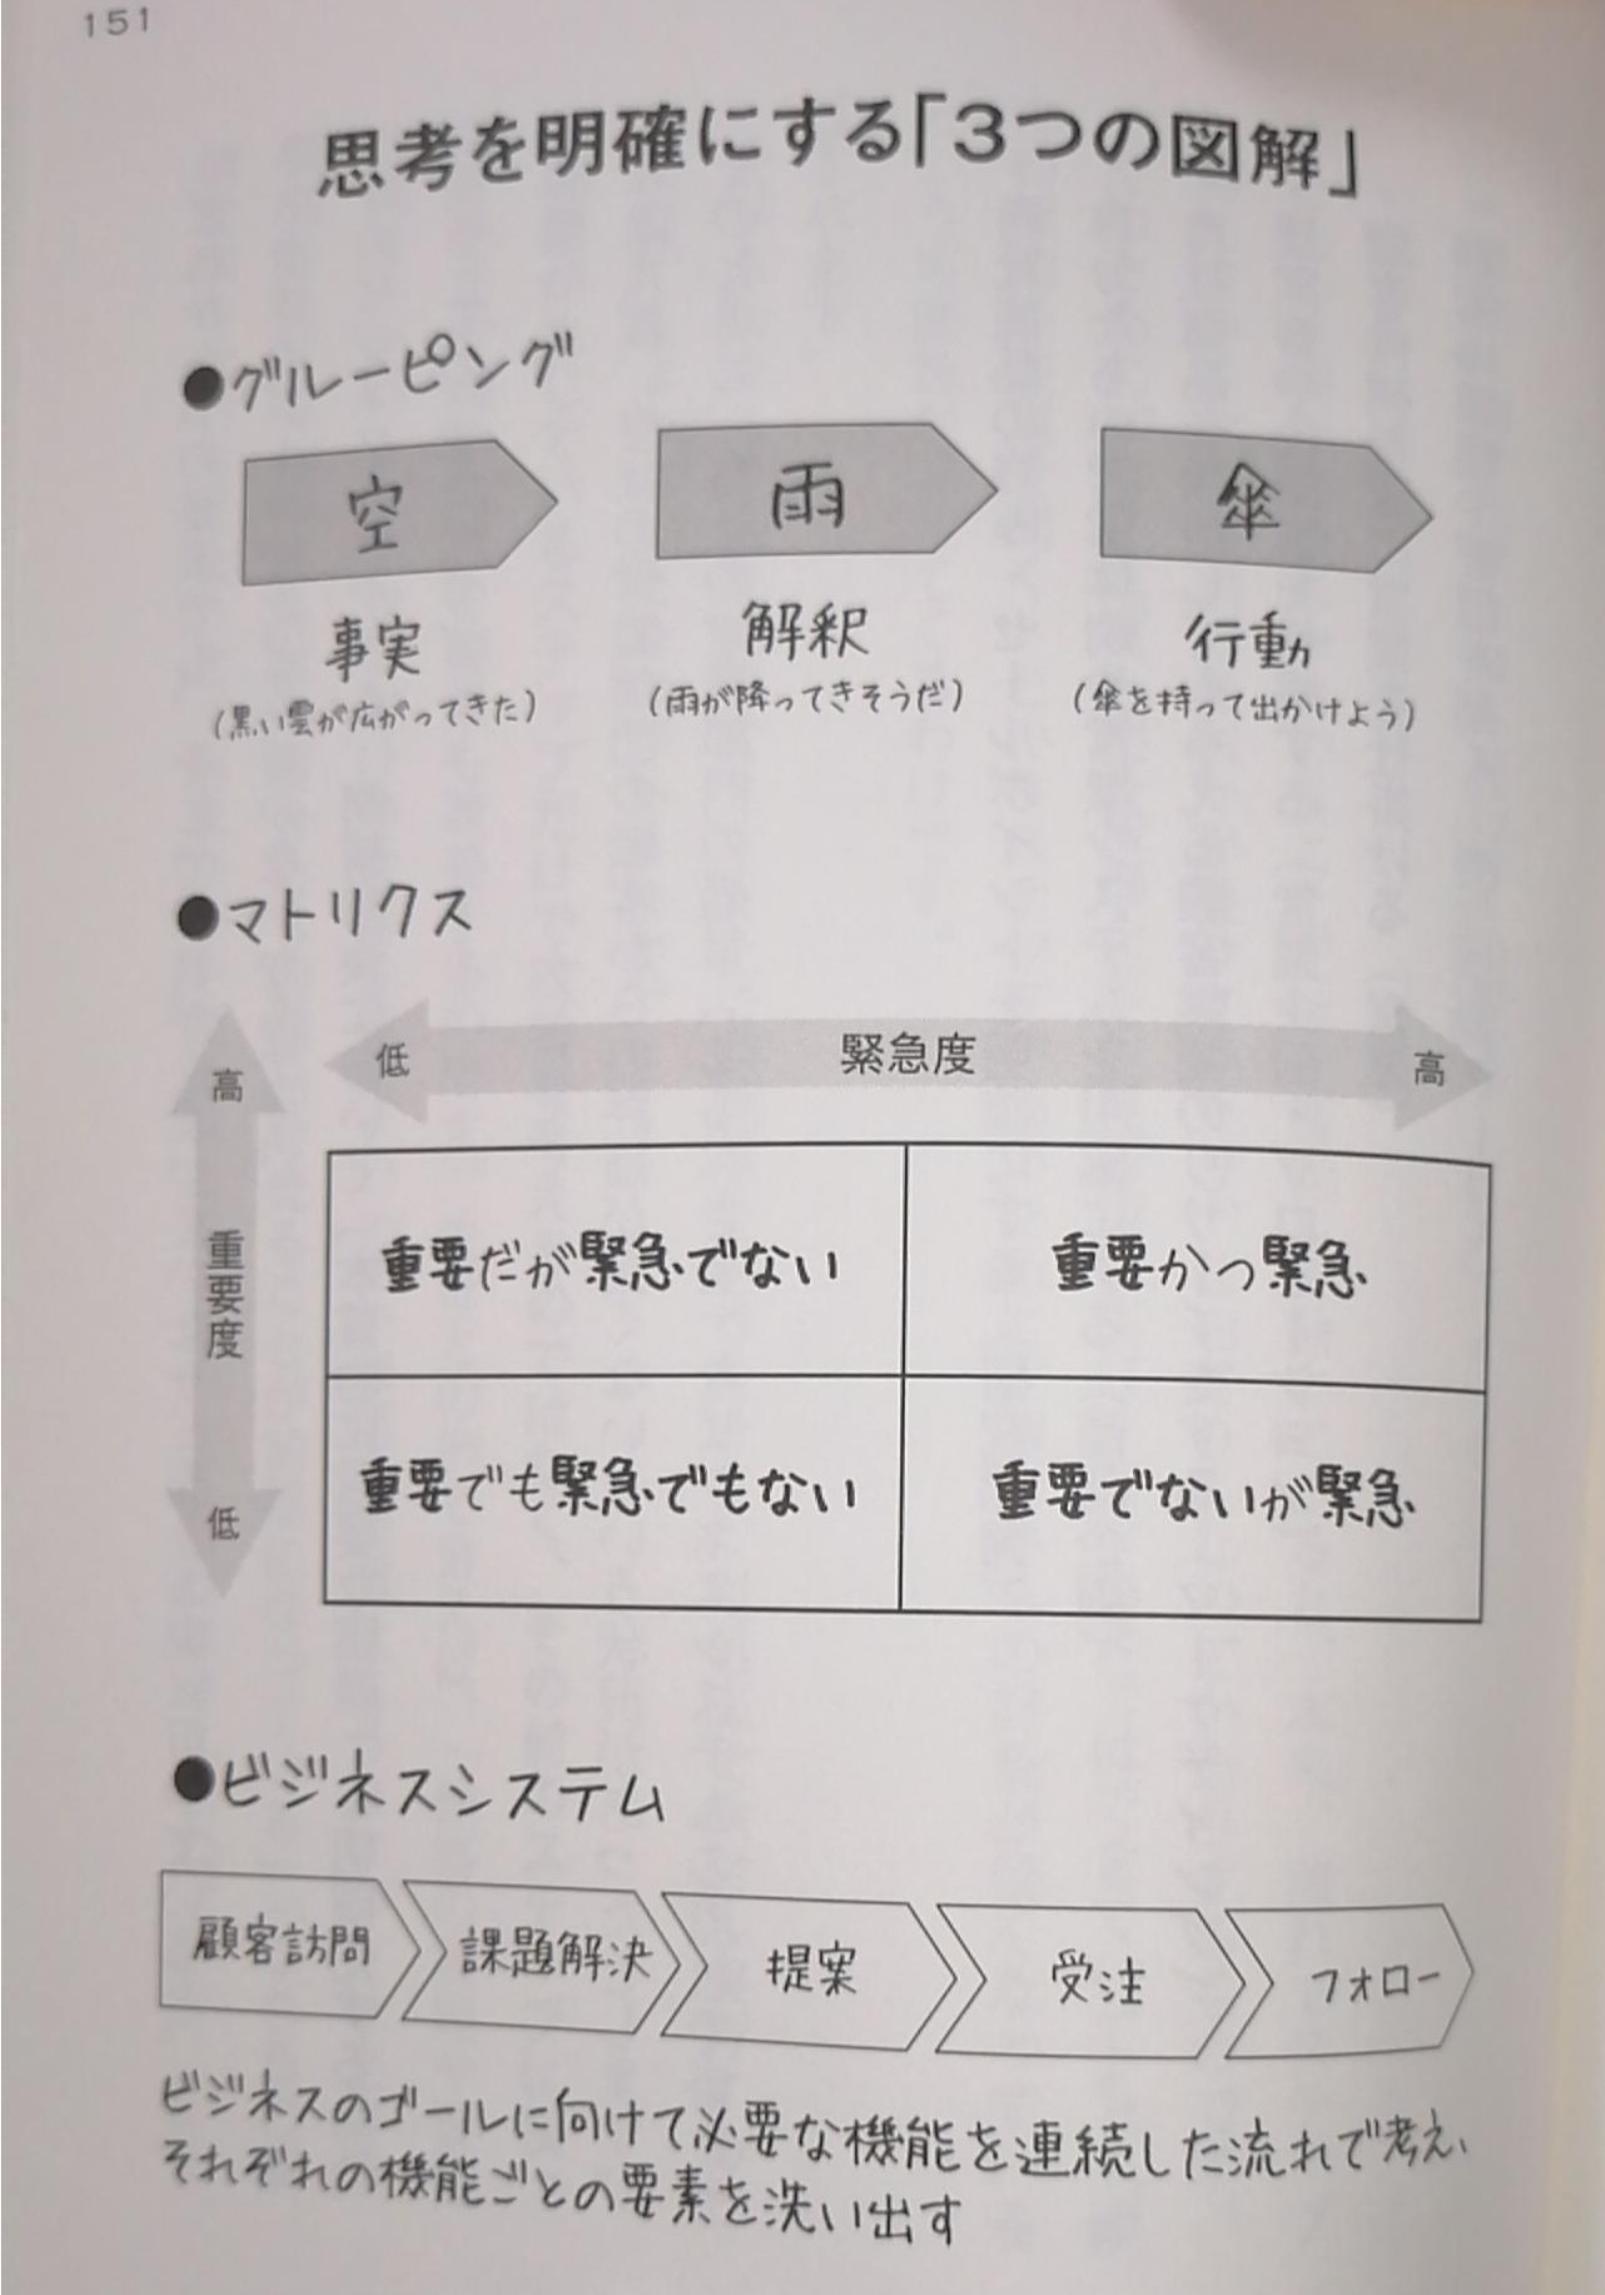 151
思考を明確にする「3つの図解」
●グルーピング
空
雨
傘
事実
解釈
行動
(黒い雲が広がってきた)
(雨が降ってきそうだ)
(傘を持って出かけよう)
●マトリクス
低
緊急度
高
高
重要度
低
重要だが緊急でない
重要かつ緊急
重要でも緊急でもない
重要でないが緊急
●ビジネスシステム
顧客訪問
課題解決
提案
受注
フォロー
ビジネスのゴールに向けて必要な機能を連続した流れで考え、
それぞれの機能ごとの要素を洗い出す